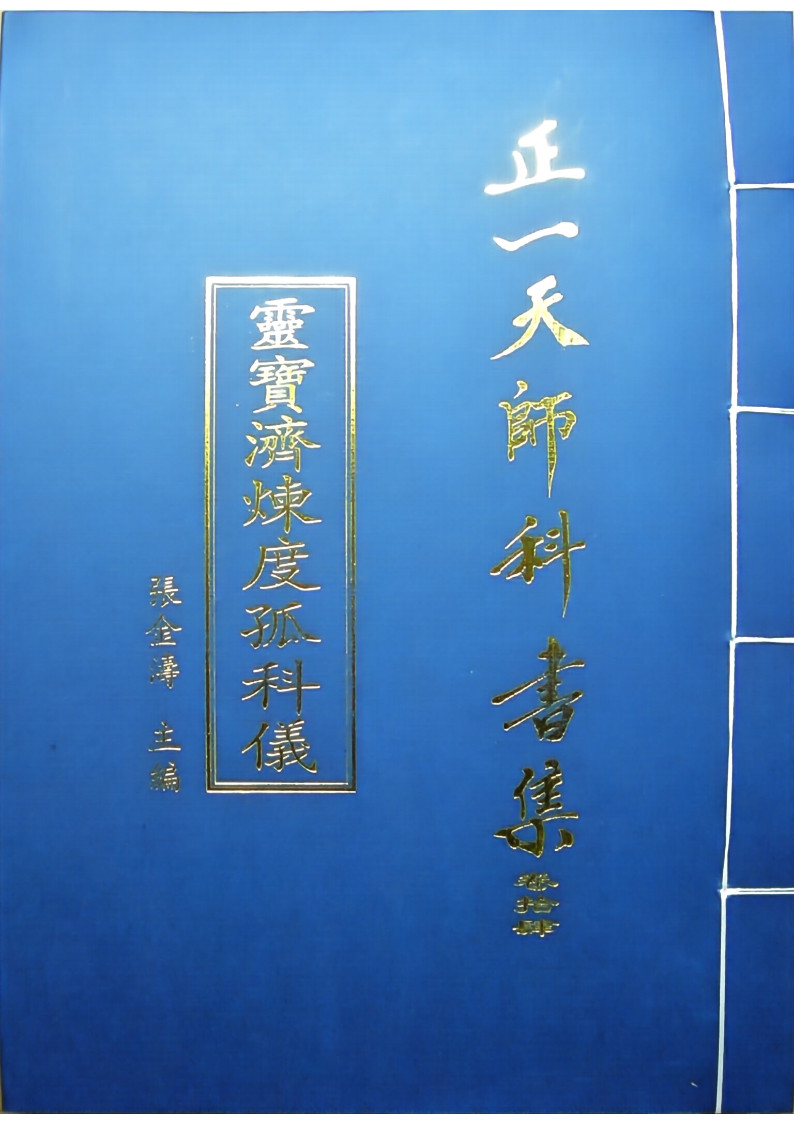 正一天師科書集
卷拾肆
靈寶濟煉度孤科儀
張金濤 主編